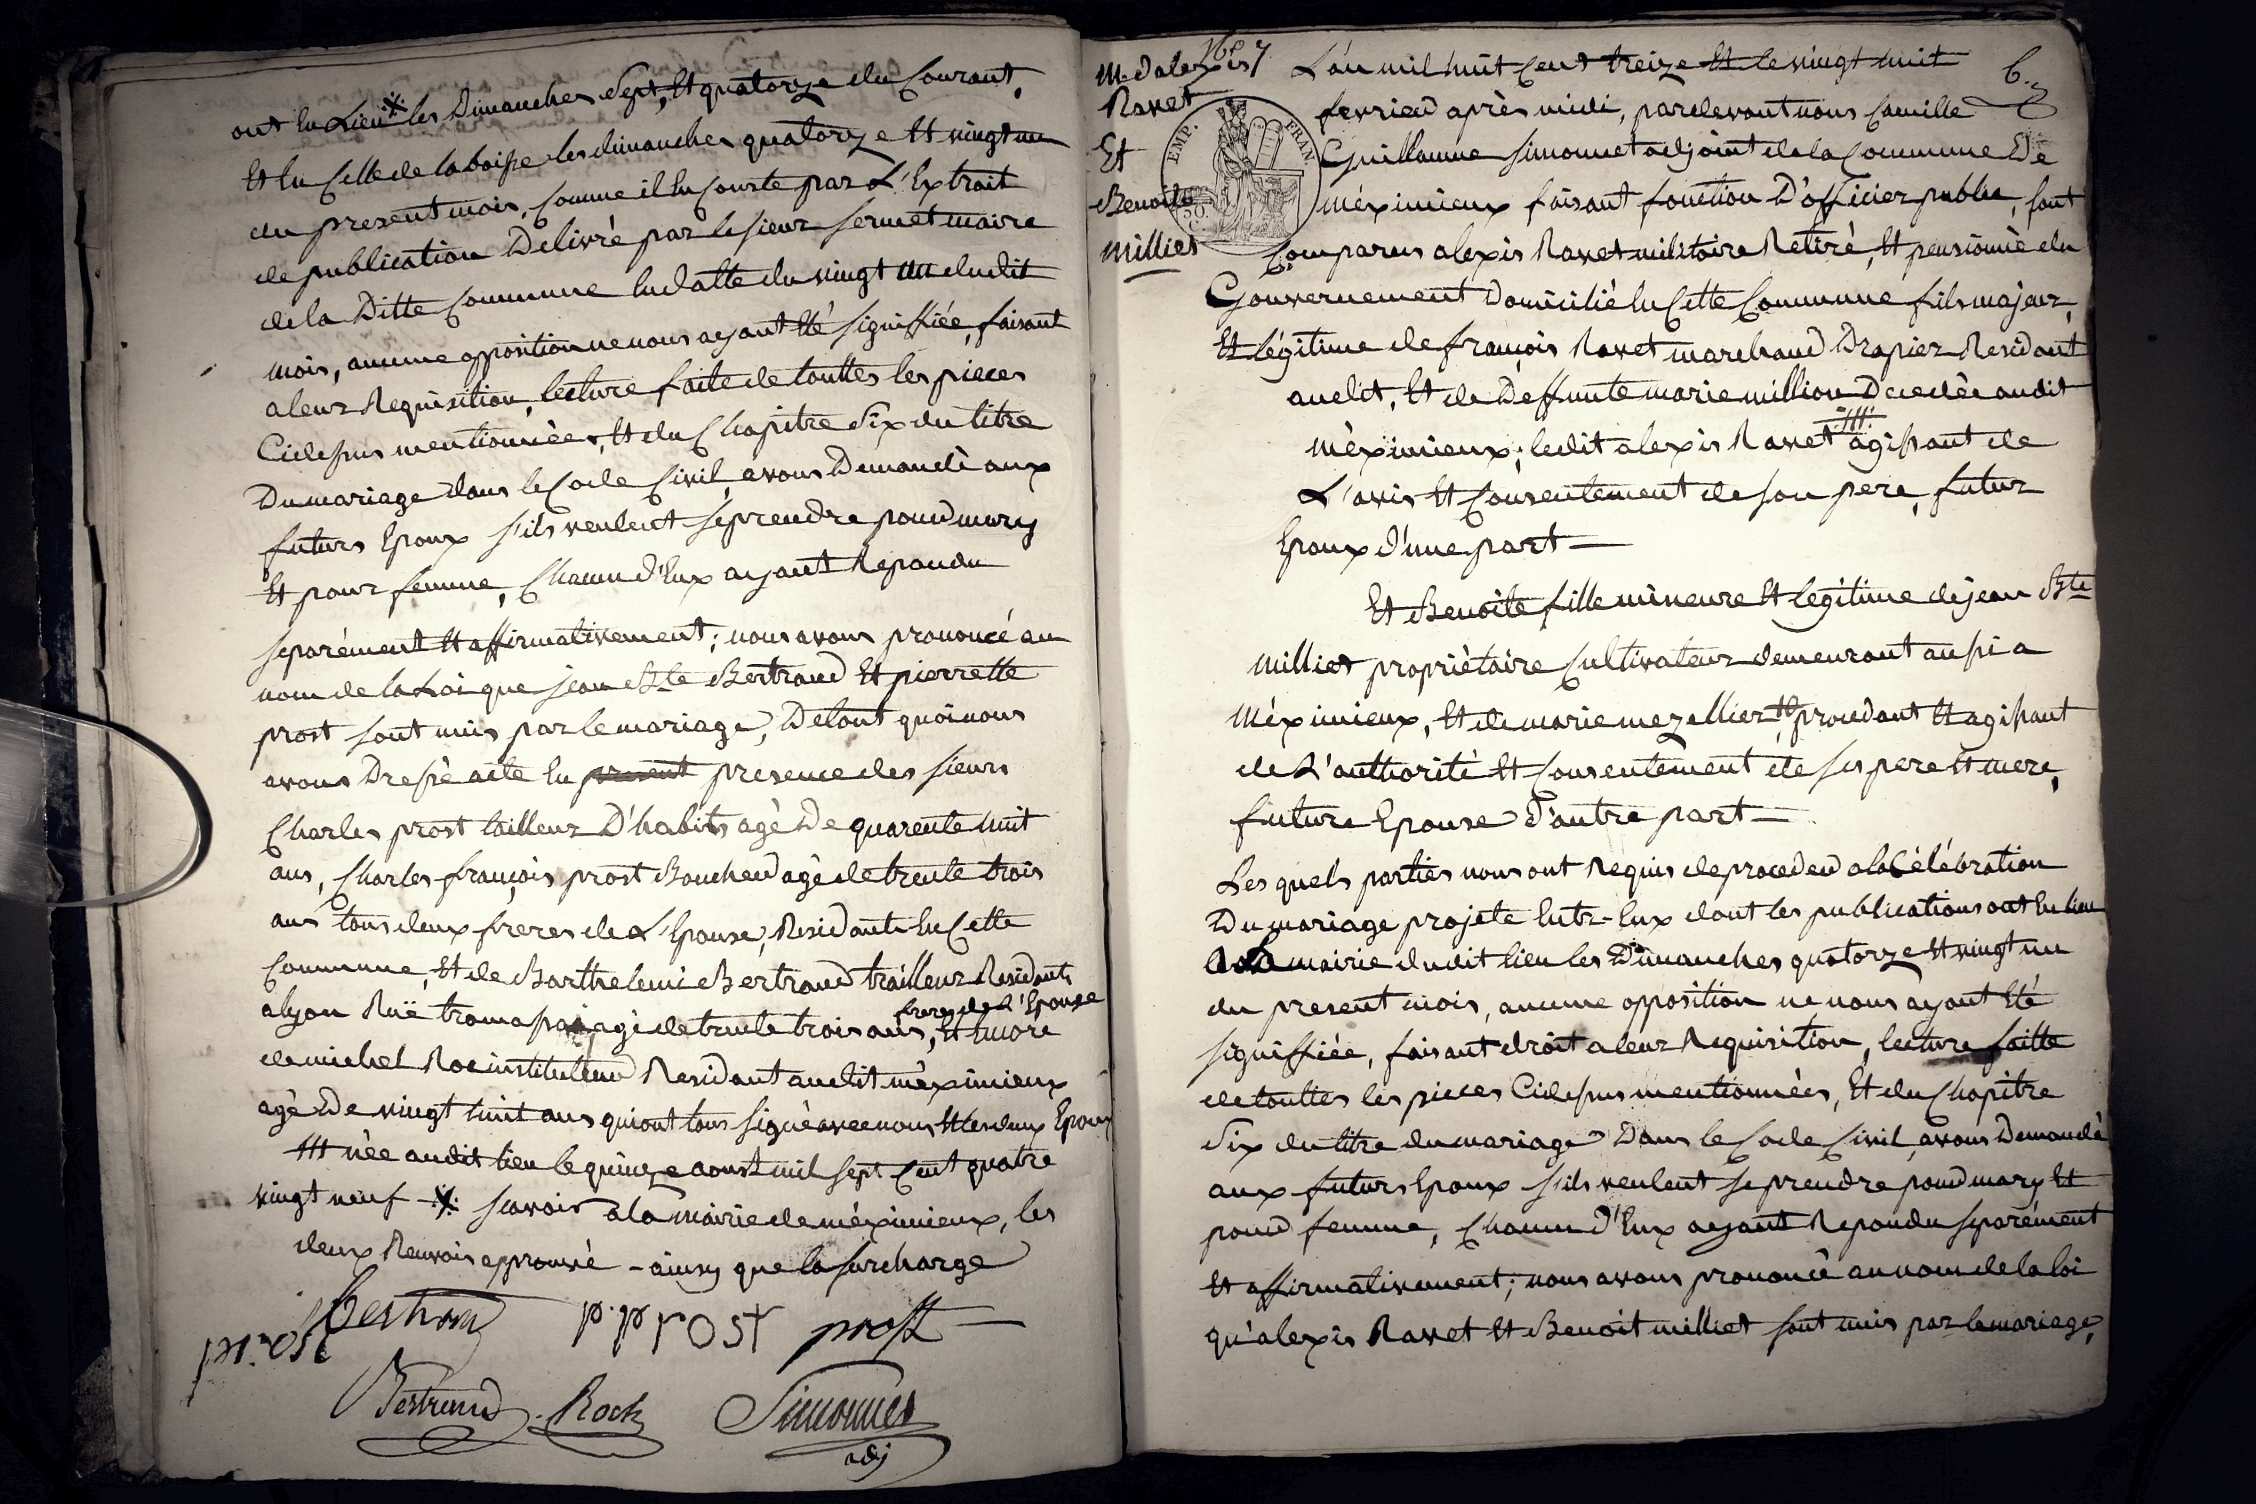 ont Eu Lieu les Dimanches Sept, Et quatorze du Courant,
Et En Celle de laboisse les dimanches quatorze Et vingt un
du present mois, Comme il En Conste par L'Extrait
de publication Delivré par le sieur sermet maire
de la Ditte Commune En datte du vingt un dudit
mois, aucune opposition ne nous ayant Eté signiffiée, faisant
a leur Requisition, lecture faite de touttes les pieces
Cidessus mentionnées, Et du Chapitre Six du titre
Du mariage dans le Code Civil, avons Demandé aux
futurs Epoux s'ils veulent se prendre pour mary
Et pour femme, Chacun d'Eux ayant Repondu
separément Et affirmativement; nous avons prononcé au
nom de la Loi que jean Bte Bertrand Et pierrette
prost sont unis par le mariage, De tout quoi nous
avons Dressé acte En present presence des sieurs
Charles prost tailleur D'habits agé De quarente huit
ans, Charles françois prost Boucher agé de trente trois
ans tous deux freres de L'Epouse, Residants En Cette
Commune, Et de Barthelemi Bertrand trailleur Residant
frere de L'Epouse
a lyon Ruë agé de trente trois ans, Et Encore
de michel Roc instituteur Residant audit méximieux
agé De vingt huit ans qui ont tous signé avec nous Et les deux Epoux
/// née audit lieu le quinze aoust mil sept Cent quatre
vingt neuf -※- scavoir a la mairie de méximieux, les
deux Renvois approuvé - ainsy que la surcharge
prost Bertrand p.pprost prost
Bertrand Rock Simonnet
adj
M. d'alexis
Ravet
Et
Benoite
milliet
7
EMP. FRAN.
50.
C.
6.
L'an mil huit Cent treize Et le vingt huit
fevrier après midi, pardevant nous Camille
Guillaume simonnet adjoint de la Commune De
méximieux faisant fonction D'officier public, sont
Comparus alexis Ravet militaire Retiré, Et pensionné du
Gouvernement Domicilié En Cette Commune fils majeur,
Et légitime de françois Ravet marchand Drapier Residant
audit, Et de Deffunte marie million Decedée audit
méximieux, ledit alexis Ravet /// agissant de
L'avis Et Consentement de son pere, futur
Epoux d'une part —
Et Benoite fille mineure Et légitime de jean Bte
milliet propriétaire Cultivateur demeurant aussi a
Méximieux, Et de marie mezellier procedant Et agissant
de L'authorité Et Consentement de ses pere Et mere,
future Epouse d'autre part —
Les quels parties nous ont Requis de proceder a la Célébration
Du mariage projeté Entr-Eux dont les publications ont Eu lieu
a La mairie dudit lieu les Dimanches quatorze Et vingt un
du present mois, aucune opposition ne nous ayant Eté
signiffiée, faisant droit a leur Requisition, lecture faitte
de touttes les pieces Cidessus mentionnées, Et du Chapitre
Six du titre du mariage Dans le Code Civil, avons Demandé
aux futurs Epoux s'ils veulent se prendre pour mary Et
pour femme, Chacun d'Eux ayant Repondu separément
Et affirmativement; nous avons prononcé au nom de la loi
qu'alexis Ravet Et Benoit milliet sont unis par le mariage,